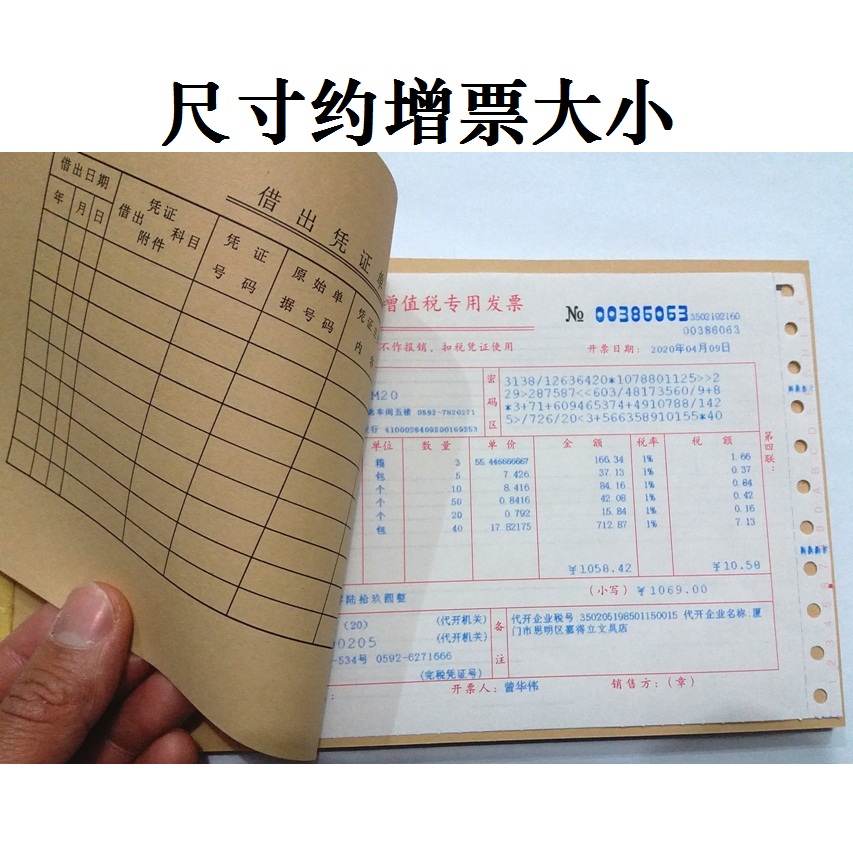 尺寸约增票大小
借出凭证
借出日期
年 月 日
凭证
借出 科目
附件
凭证
号码
原始单
据号码
内
增值税专用发票
№ 00386063
3502192160
00386063
不作报销、扣税凭证使用
开票日期: 2020年04月09日
密码区
3138/12636420*1078801125>>2
29>287587<<603/48173560/9+8
*3+71+609465374+4910788/142
5>/726/20<3+566358910155*40
单位 数量 单价 金额 税率 税额
箱 3 55.446666667 166.34 1% 1.66
包 5 7.426 37.13 1% 0.37
个 10 8.416 84.16 1% 0.84
个 50 0.8416 42.08 1% 0.42
个 20 0.792 15.84 1% 0.16
包 40 17.82175 712.87 1% 7.13
第四联:
¥1058.42 ¥10.58
陆拾玖圆整 (小写) ¥1069.00
(20) (代开机关)
0205 (代开机关)
-534号 0592-6271666
(完税凭证号)
备注
代开企业税号:350205198501150015 代开企业名称:厦
门市思明区嘉得立文具店
开票人: 曾华伟 销售方:(章)